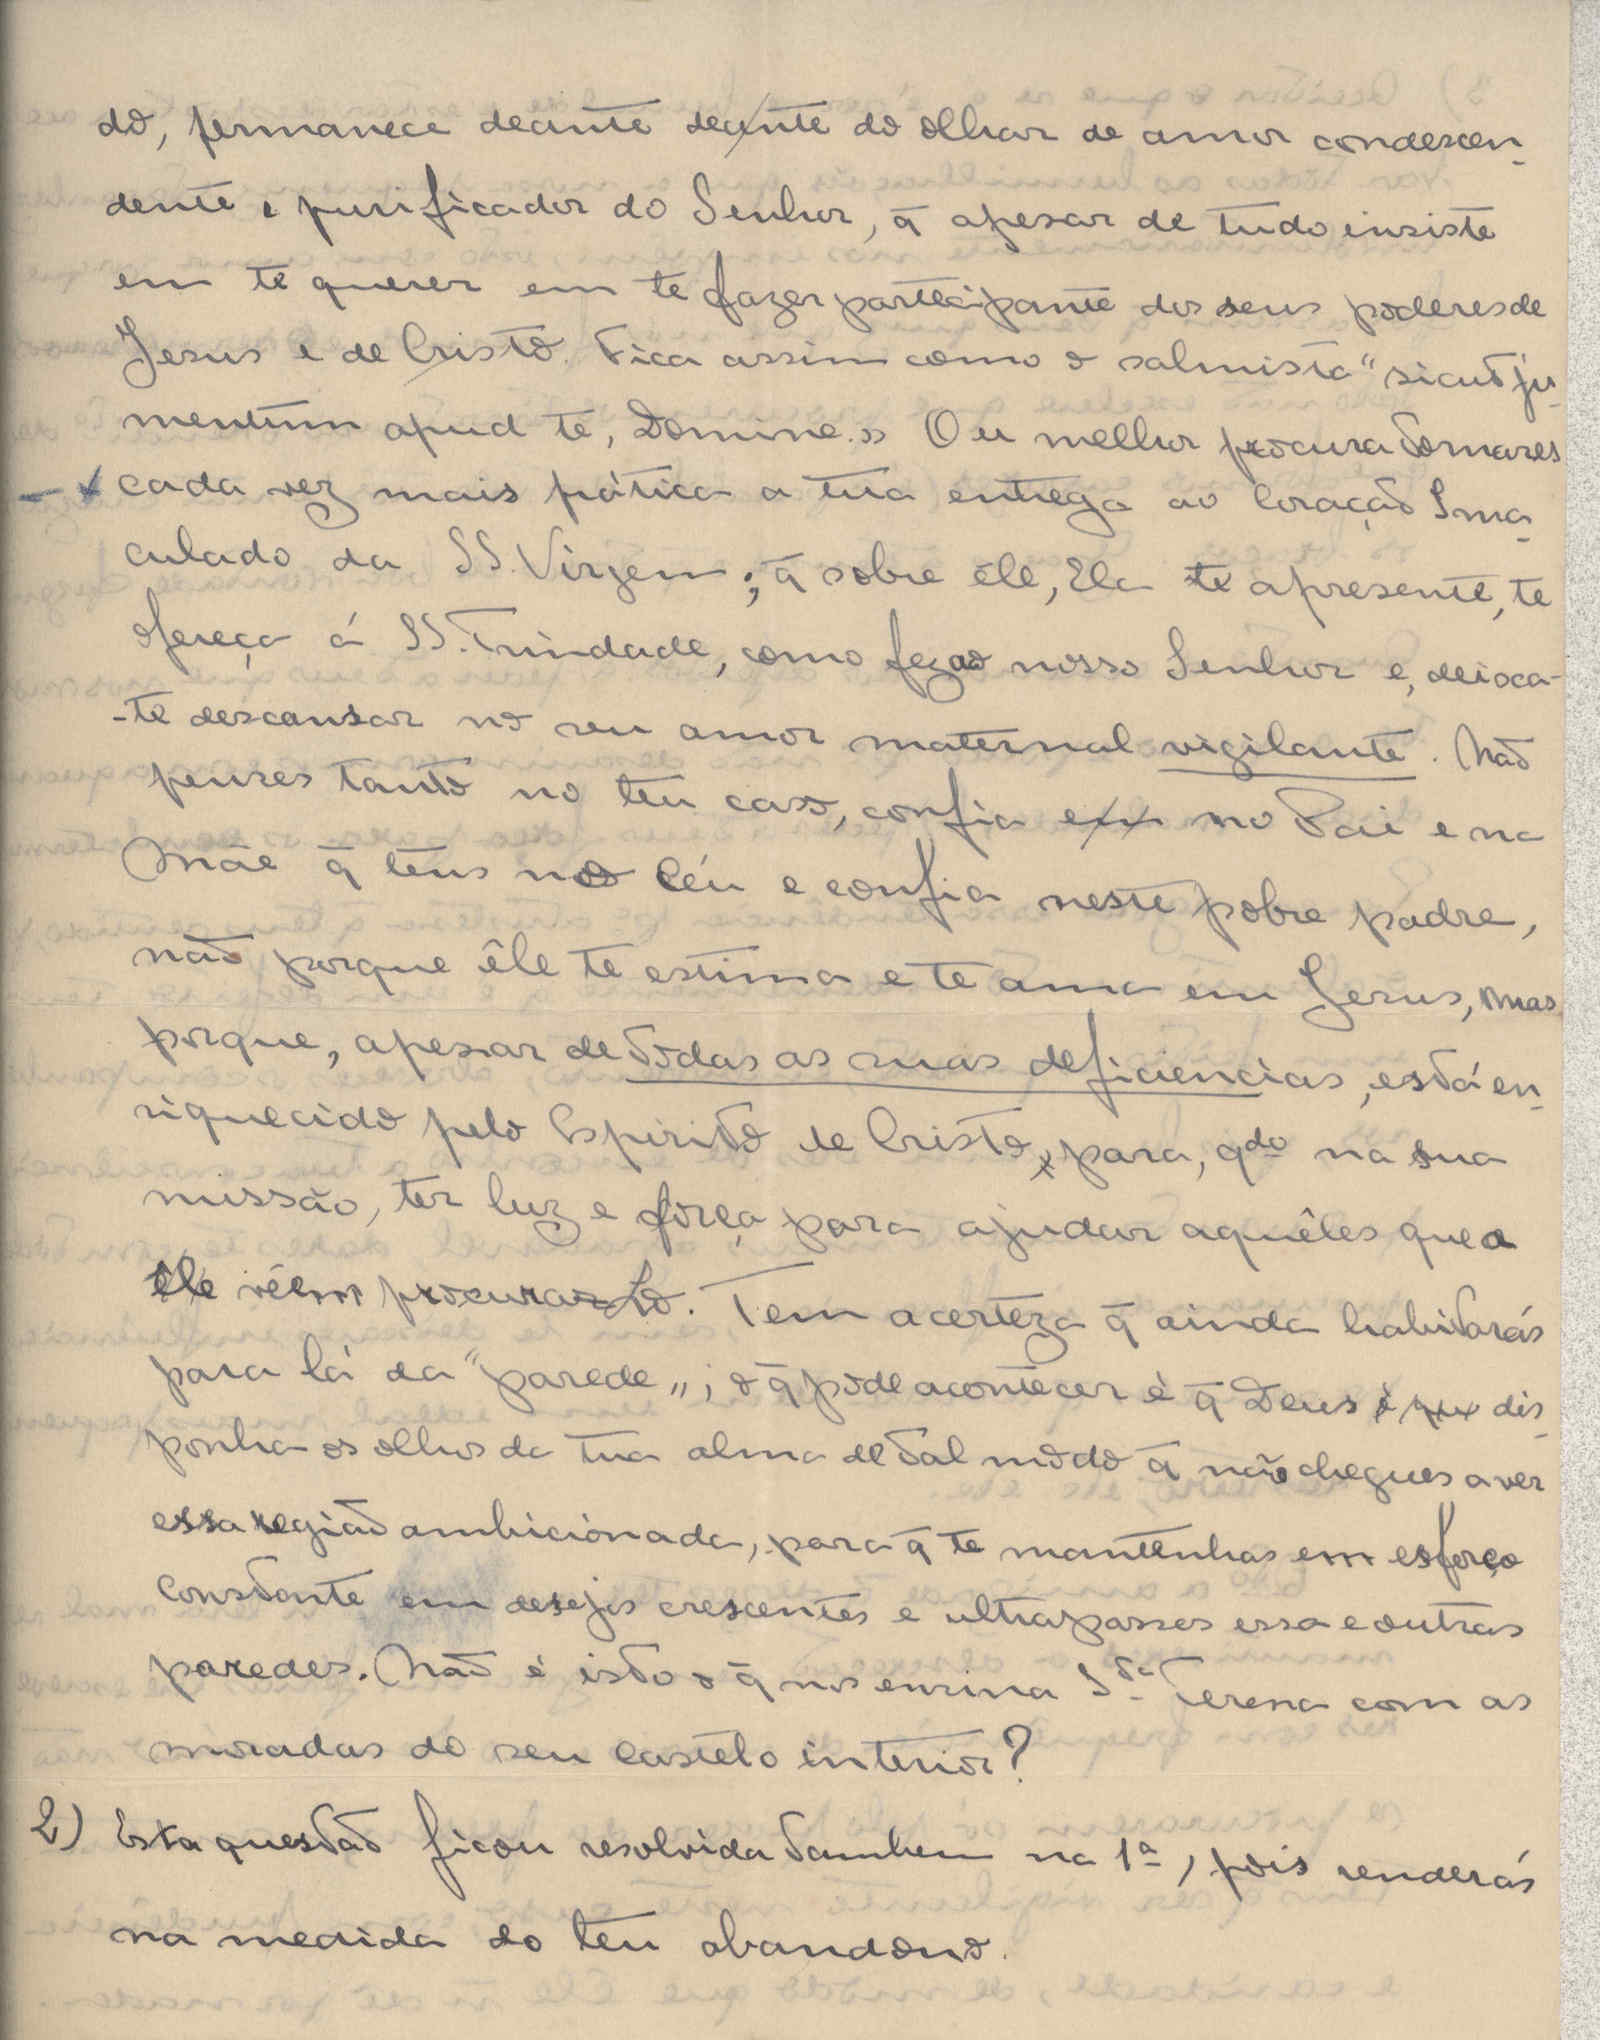 do, permanece deante deante do olhar de amor condescen-
dente e purificador do Senhor, q̄ apesar de tudo insiste
em te querer em te fazer participante dos seus poderes de
Jesus e de Cristo. Fica assim como o salmista "sicut ju-
mentum apud te, Domine.» Ou melhor procura tornares
cada vez mais prática a tua entrega ao Coração Ima-
culado da SS. Virgem; q̄ sobre êle, Ela te apresente, te
ofereça á SS. Trindade, como fez ao nosso Senhor e, deixa-
-te descansar no seu amor maternal vigilante. Não
penses tanto no teu caso, confia em no Pai e na
Mãe q̄ tens no Céu e confia neste pobre padre,
não porque êle te estima e te ama em Jesus, mas
porque, apesar de todas as suas deficiencias, está en-
riquecido pelo Espirito de Cristo, para, qdo na sua
missão, ter luz e força para ajudar aquêles que a
êle vêem procurar. Tem a certeza q̄ ainda habitarás
para lá da "parede„; o q̄ pode acontecer é q̄ Deus é que dis-
ponha os olhos da tua alma de tal modo q̄ não chegues a ver
essa região ambicionada, para q̄ te mantenhas em esforço
constante em desejos crescentes e ultrapasses essa e outras
paredes. Não é isto o q̄ nos ensina Sta Teresa com as
moradas do seu castelo interior?
2) Esta questão ficou resolvida tambem na 1ª, pois renderás
na medida do teu abandono.